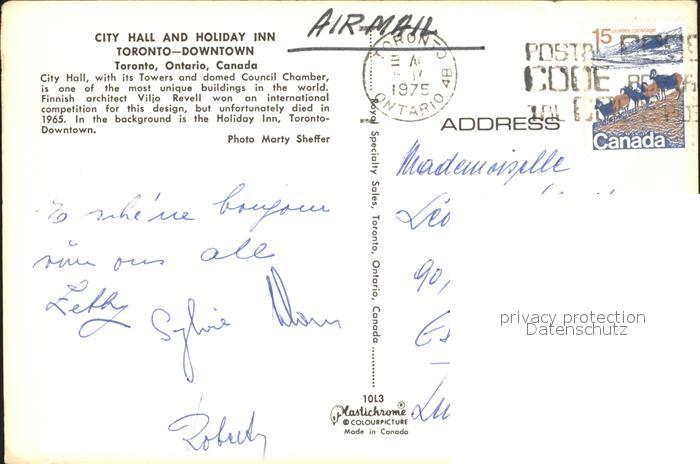 AIR-MAIL
CITY HALL AND HOLIDAY INN
TORONTO—DOWNTOWN
Toronto, Ontario, Canada
City Hall, with its Towers and domed Council Chamber,
is one of the most unique buildings in the world.
Finnish architect Viljo Revell won an international
competition for this design, but unfortunately died in
1965. In the background is the Holiday Inn, Toronto-
Downtown.
Photo Marty Sheffer
TORONTO
1975
ONTARIO 4B
POSTAL
CODE
15 postes/postage
Canada
ADDRESS
Mademoiselle
Léo
90,
Es
Lu
schéine bonjour
vun ons all
Sylvie
Robert
Royal Specialty Sales, Toronto, Ontario, Canada
10L3
Plastichrome®
©COLOURPICTURE
Made in Canada
privacy protection
Datenschutz